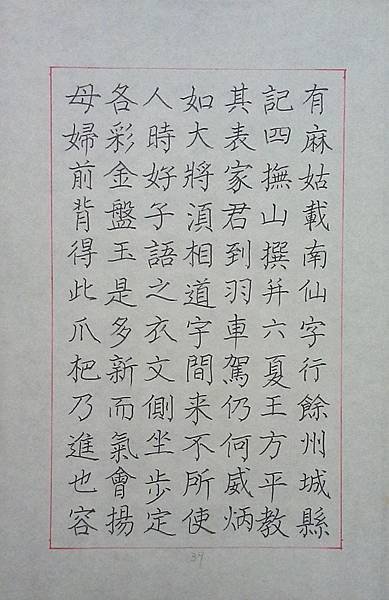 有麻姑載南仙字行餘州城縣
記四撫山撰并六夏王方平教
其表家君到羽車駕仍何威炳
如大將湏相道宇間来不所使
人時好子語之衣文側坐步定
各彩金盤玉是多新而氣會揚
母婦前背得此爪杷乃進也容
39